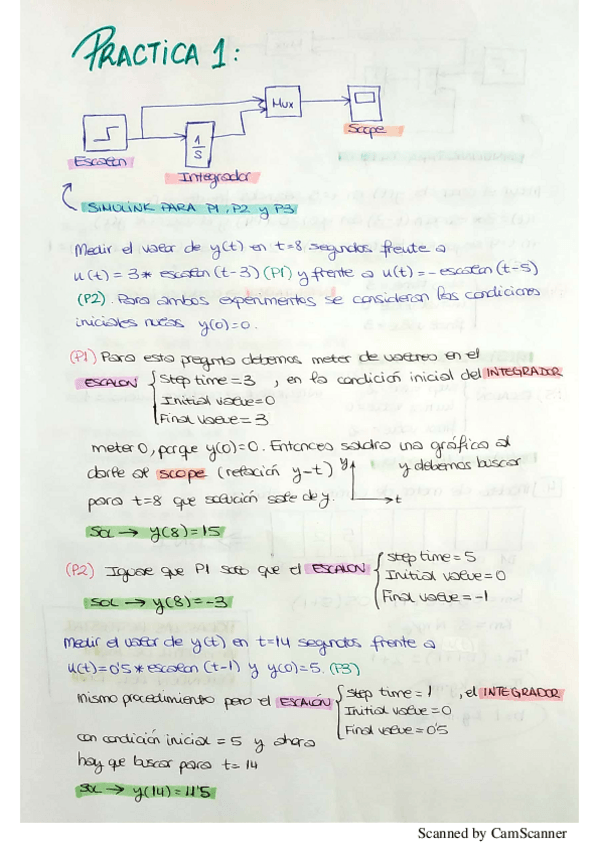 PRACTICA 1:
Mux
Scope
1/S
Escalón
Integrador
SIMULINK PARA P1, P2 y P3
Medir el valor de y(t) en t=8 segundos frente a
u(t) = 3* escalón (t-3) (P1) y frente a u(t) = - escalón (t-5)
(P2). Para ambos experimentos se consideran las condiciones
iniciales nulas y(0)=0.
(P1) Para esta pregunta debemos meter de valores en el
ESCALON { Step time = 3 , en la condición inicial del INTEGRADOR
Initial value = 0
Final value = 3
meter 0, porque y(0)=0. Entonces saldra una gráfica al
darle al scope (relación y-t) y y debemos buscar
para t=8 que solución sale de y. t
Sol → y(8)=15
(P2) Igual que P1 solo que el ESCALON { step time = 5
Initial value = 0
Final value = -1
Sol → y(8)=-3
Medir el valor de y(t) en t=14 segundos frente a
u(t)=0'5* escalón (t-1) y y(0)=5. (P3)
mismo procedimiento pero el ESCALÓN { step time = 1 , el INTEGRADOR
Initial value = 0
Final value = 0'5
con condición inicial = 5 y ahora
hay que buscar para t= 14
Sol → y(14)=11'5
Scanned by CamScanner